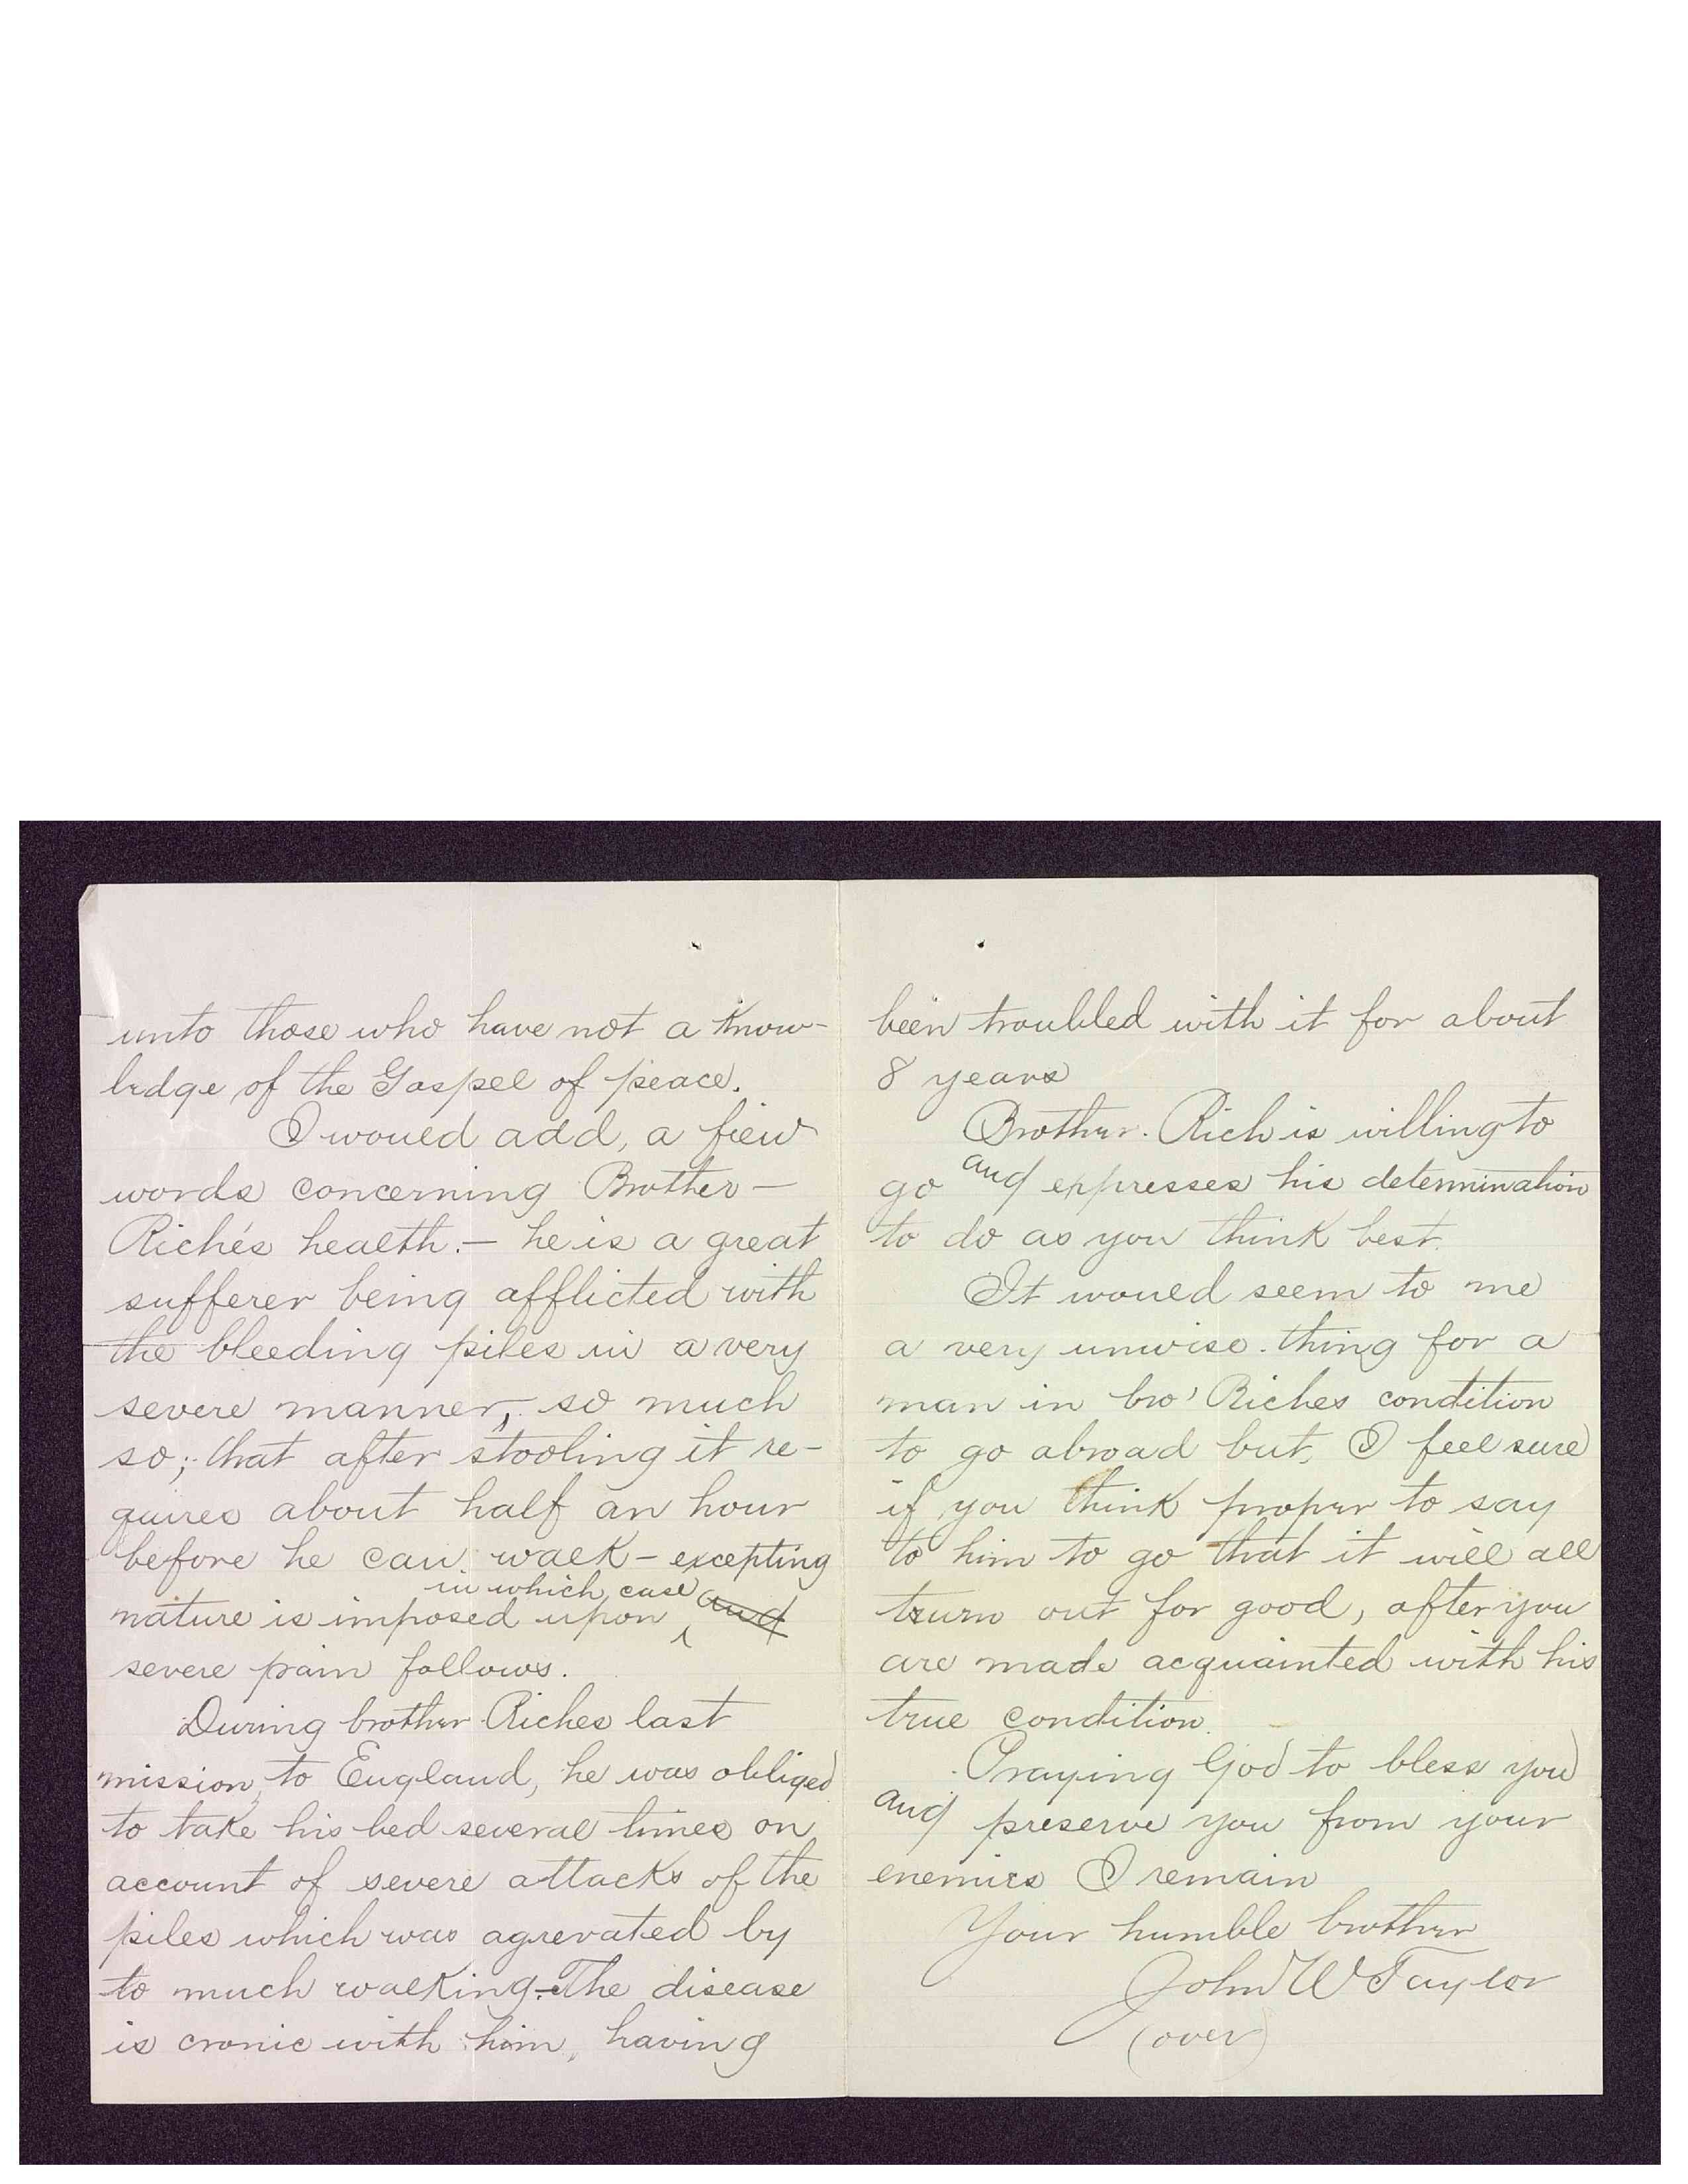 unto those who have not a know-
ledge of the Gospel of peace.
I would add, a fiew
words concerning Brother —
Riche's health. — he is a great
sufferer being afflicted with
the bleeding piles in a very
severe manner, so much
so; that after stooling it re-
quires about half an hour
before he can walk — excepting
in which case
nature is imposed upon ^ and
severe pain follows.
During brother Riches last
mission, to England, he was obliged
to take his bed several times on
account of severe attacks of the
piles which was agrevated by
to much walking. The disease
is cronic with him, having
been troubled with it for about
8 years
Brother. Rich is willing to
go and expresses his determination
to do as you think best.
It would seem to me
a very unwise thing for a
man in bro' Riches condition
to go abroad but, I feel sure
if you think proper to say
to him to go that it will all
turn out for good, after you
are made acquainted with his
true condition.
Praying God to bless you
and preserve you from your
enemies I remain
Your humble brother
John W Taylor
(over)